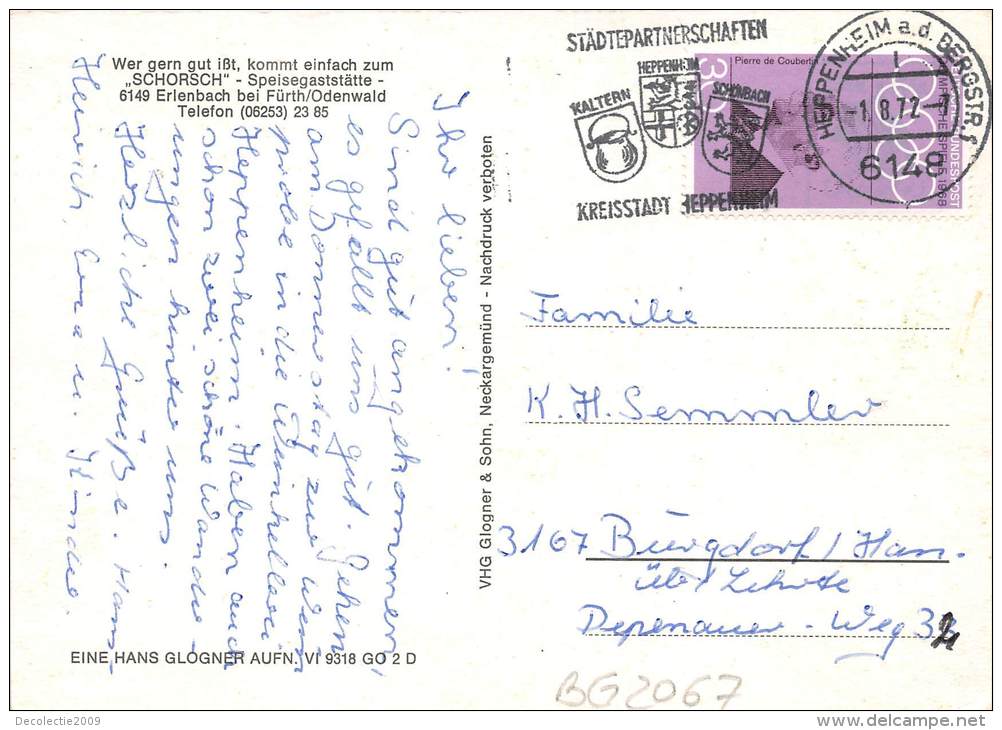 Wer gern gut ißt, kommt einfach zum
„SCHORSCH" - Speisegaststätte -
6149 Erlenbach bei Fürth/Odenwald
Telefon (06253) 23 85
Ihr lieben!
Sind gut angekommen,
es gefällt uns gut. Gehen
am Donnerstag zur Wein
probe in die Winkelleri
Heppenheim. Haben auch
schon zwei schöne Wande-
rungen hinter uns.
Herzliche Grüße. Hans-
Heinrich, Erna u. Kinder.
EINE HANS GLOGNER AUFN. VI 9318 GO 2 D
VHG Glogner & Sohn, Neckargemünd - Nachdruck verboten
STÄDTEPARTNERSCHAFTEN
KALTERN
HEPPENHEIM
SCHÖNBACH
KREISSTADT HEPPENHEIM
30
Pierre de Coubertin
OLYMPISCHE SPIELE 1968
DEUTSCHE BUNDESPOST
HEPPENHEIM a.d. BERGSTR.
-1.8.72-7
6148
f
Familie
K. H. Semmler
3167 Burgdorf / Han-
über Lehrte
Depenauer - Weg
BG2067
Decolectie2009
delcampe.net